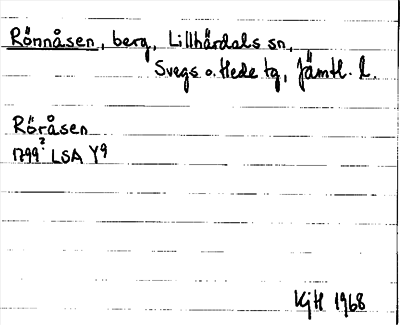 Rönnåsen, berg, Lillhärdals sn,
Svegs o. Hede tg, Jämtl. l.
Röråsen
1799? LSA Y9
KjH 1968